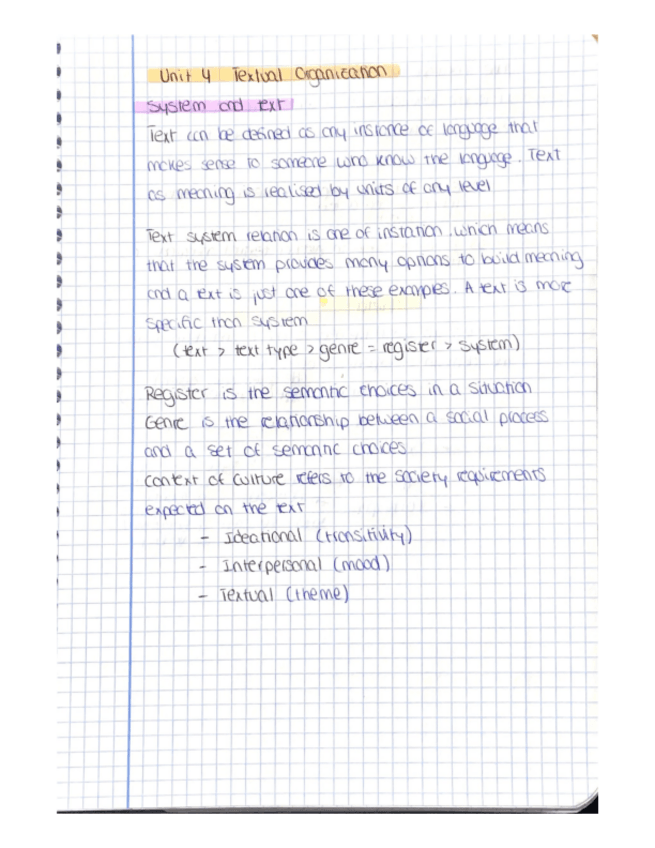 Unit 4 Textual Organization
System and text
Text can be defined as any instance of language that
makes sense to someone who know the language. Text
as meaning is realised by units of any level
Text system relation is one of instation, which means
that the system provides many options to build meaning
and a text is just one of these examples. A text is more
specific than system
(text > text type > genre = register > system)
Register is the semantic choices in a situation
Genre is the relationship between a social process
and a set of semantic choices.
Context of culture refers to the society requirements
expected on the text
- Ideational (transitivity)
- Interpersonal (mood)
- Textual (theme)